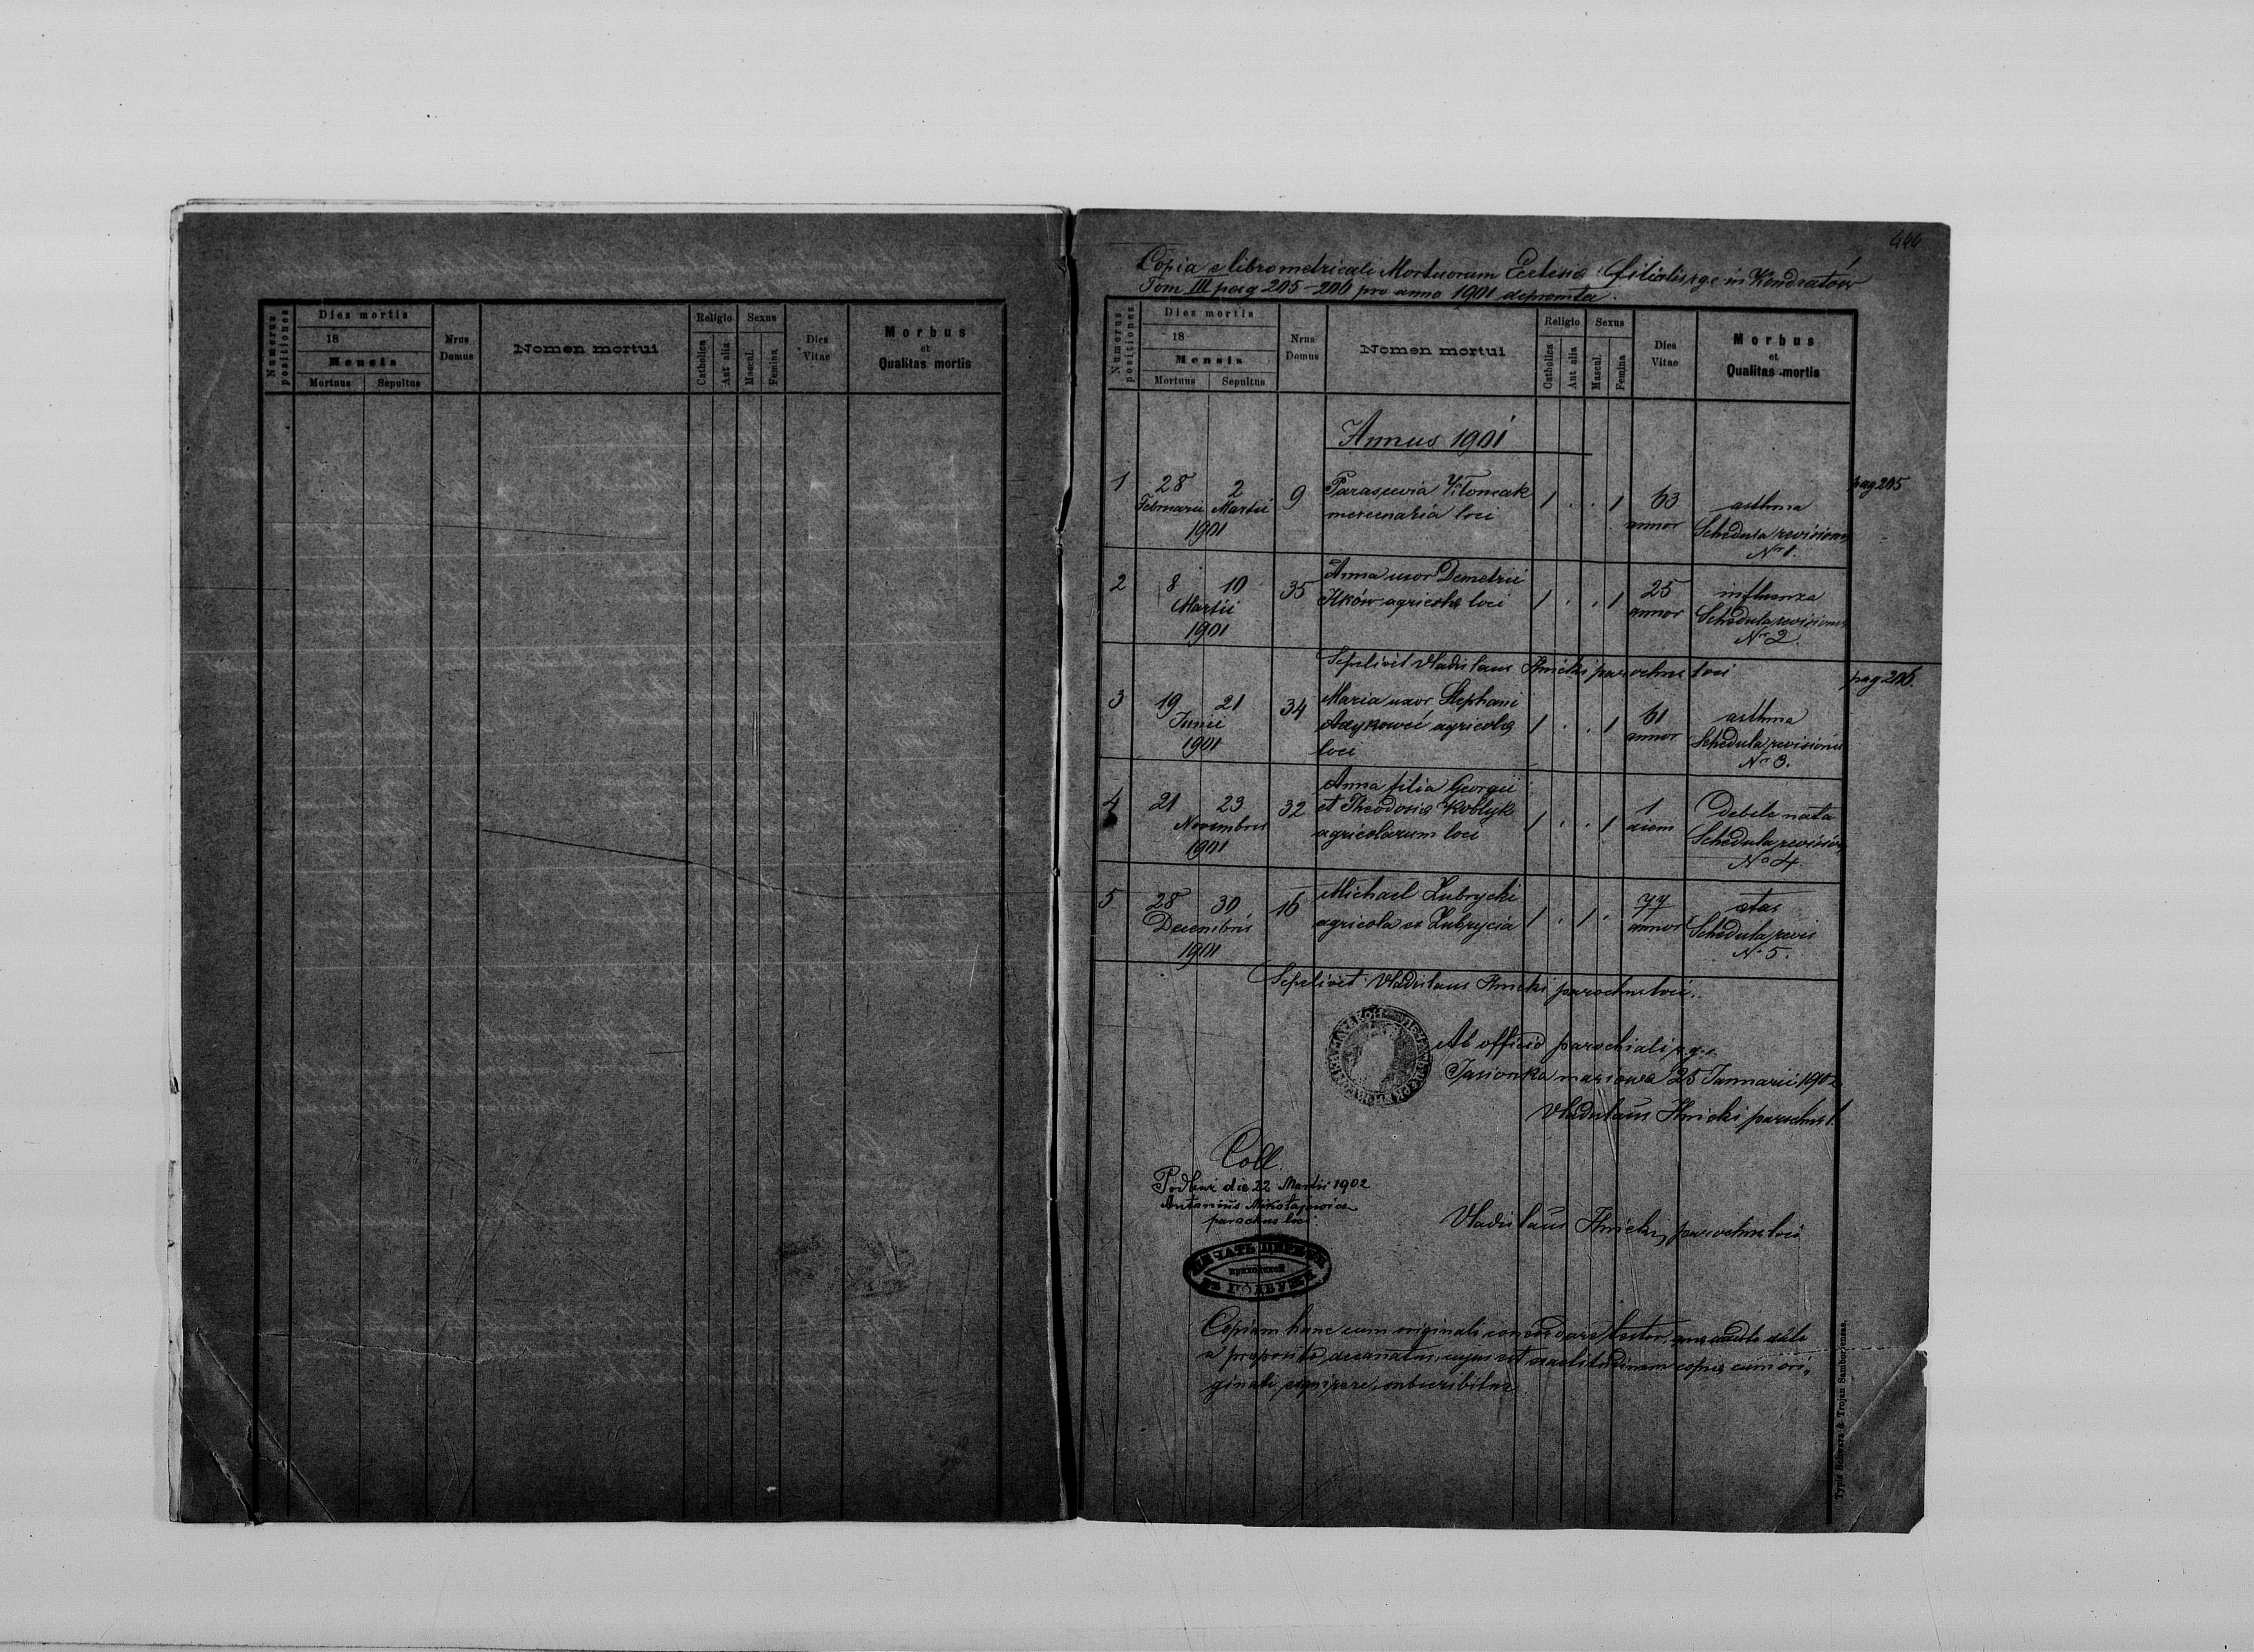 Numerus positiones
Dies mortis
18
Mensis
Mortuus Sepultus
Nrus Domus
Nomen mortui
Religio
Catholica
Aut alia
Sexus
Mascul.
Femina
Dies Vitae
Morbus
et
Qualitas mortis
444
Copia e libro metricali Mortuorum Ecclesiæ filialis r. g. c. in Kondratów
Tom III pag 205-206 pro anno 1901 depromta.
Numerus positiones
Dies mortis
18
Mensis
Mortuus Sepultus
Nrus Domus
Nomen mortui
Religio
Catholica
Aut alia
Sexus
Mascul.
Femina
Dies Vitae
Morbus
et
Qualitas mortis
Annus 1901
pag 205
1 28 2 9 Parascevia 1 . . 1 63 asthma
Februarii Martii mercenaria loci annor Schedula revisionis
1901 Nr 1.
2 8 10 35 Anna uxor Demetrii 1 . . 1 25 influenza
Martii Ilków agricolæ loci annor Schedula revisionis
1901 Nr 2.
Sepelivit Vladislaus Ilnicki parochus loci
pag 206.
3 19 21 34 Maria uxor Stephani 1 . . 1 61 asthma
Junii agricolæ annor Schedula revisionis
1901 loci Nr 3.
4 21 23 32 Anna filia Georgii 1 . . 1 1 Debile nata
Novembris et Theodosiæ Koblyk diem Schedula revision
1901 agricolarum loci No 4.
5 28 30 16 Michael Lubrycki 1 . 1 . 77 ætas
Decembris agricola ex annor Schedula revis
1901 N. 5.
Sepelivit Vladislaus Ilnicki parochus loci.
Ab officio parochiali r. g. c.
Jasionka masiowa 25 Januarii 1902
Vladislaus Ilnicki parochus l.
Coll.
die 22 Martii 1902
Antonius Mikołajewicz
parochus loci
Vladislaus Ilnicki parochus loci
ПЕЧАТЬ ЦЕРКВИ
приходской
ВЪ ПОДБУЖИ
Copiam hanc cum originali concordare testor,
a præposito decanatus, cujus est exactitudinem copiæ cum ori-
ginali
Typis Schwarz & Trojan Samboriensae.